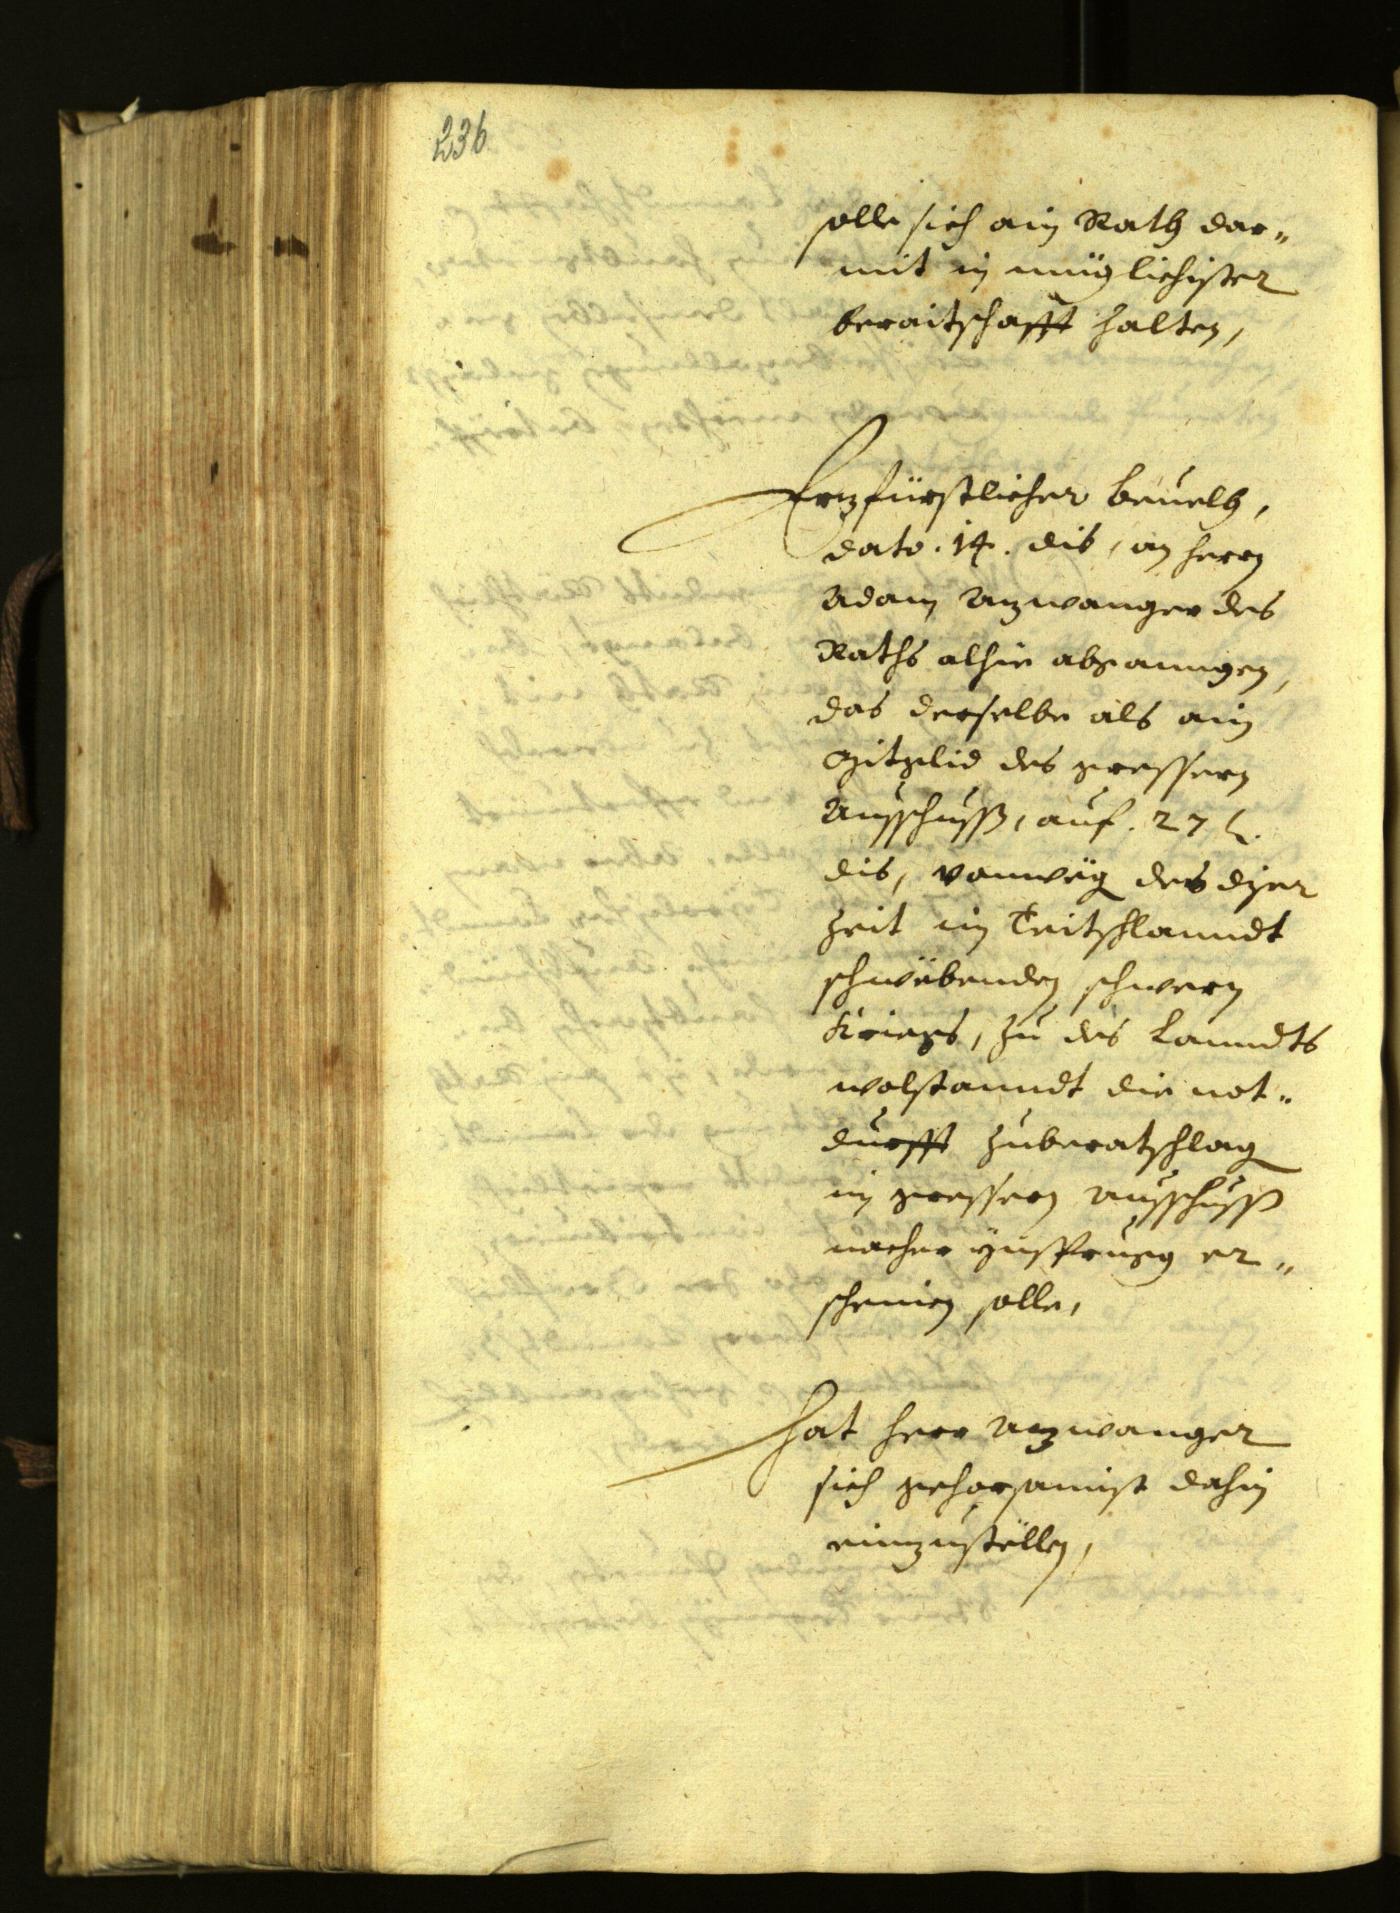 236
solle sich ain Rath dar„
mit in müglichister
beraitschafft halten,
Erzfürstlicher beuelh,
dato .14. dis, an herrn
Adam Azwanger des
Raths alhie abganngen,
das derselbe als ain
Mitglid des gressern
Ausschuss, auf .27
dis, vonweg des diser
Zeit in Teitschlanndt
schwëbenden schwern
Kriegs, zu des Lanndts
wolstanndt die not„
durfft zuberatschlag
in gressern Ausschuss
nacher Ynsprugg er„
scheinen solle,
Hat herr Azwanger
sich gehorsamist dahin
einzustellen,